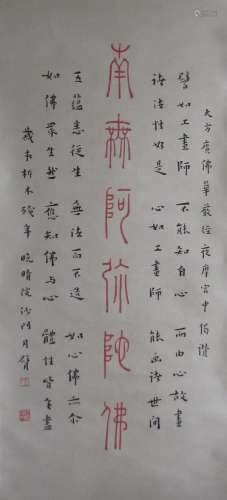 大方廣佛華嚴經夜摩宮中偈讚
譬如工畫師 不能知自心 而由心故畫
諸法性如是 心如工畫師 能畫諸世間
南無阿弥陀佛
五蘊悉從生 無法而不造 如心佛亦尒
如佛眾生然 應知佛與心 體性皆無盡
歲在析木殘年 晚晴院沙門月臂